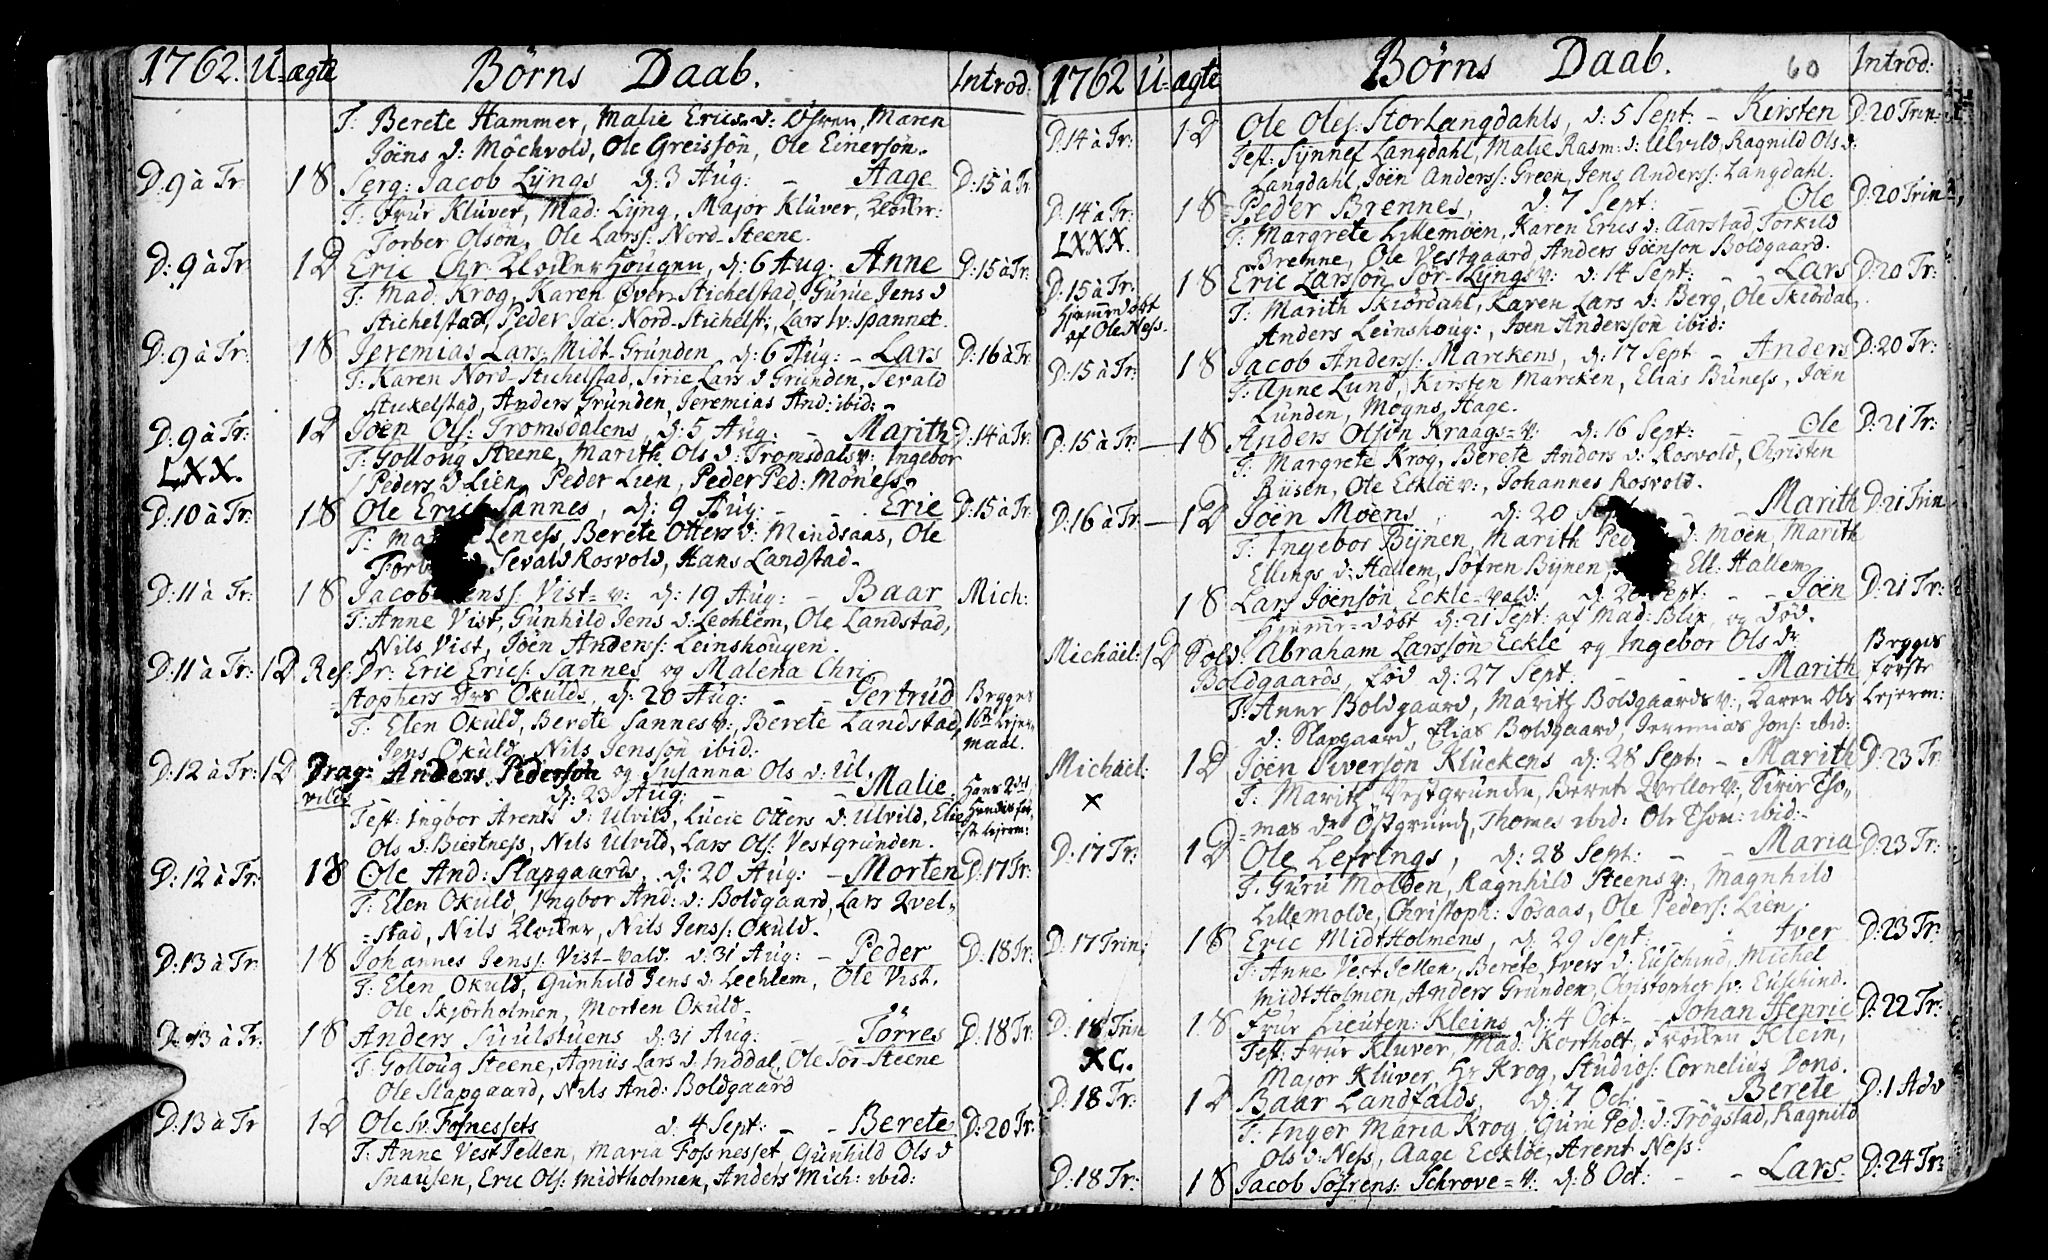 1762. U- ægte Börns Daab. Introd:
T. Berete Hammer, Malie Erics d: Øfren, Maren
Joëns d: Möchvold, Ole Greissön, Ole Einersön.
D: 9 à Tr: 1 8 Serg: Jacob Lÿngs d: 3 Aug: - Aage D: 15 à Tr
T: Frür Klüver, Mad: Lÿng, Major Klüver, Klocker:
Torber Olsön, Ole Larss: Nord-Steene.
D: 9 à Tr 1 D Eric Chr: KlockerHougen, d: 6 Aug: Anne D: 15 à Tr:
T: Mad. Krog, Karen Över-Stichelstad, Gurue Jens d
Stichelstad, Peder Jac: Nord-Stichelst:, Lars sv: Spannet.
D: 9 à Tr: 1 8 Jeremias Lars: Midt-Grunden d: 6 Aug: - Lars D: 16 à Tr
T: Karen Nord-Stichelstad, Sirie Lars d Grunden, Sevald
Stickelstad, Anders Grunden, Jeremias And: ibid:
D: 9 à Tr: 1 D Joën Ols: Tromsdalens, d: 5 Aug: - Marith D: 14 à Tr:
LXX. T: Gollong Steene, Marith Ols d: Tromsdals v: Ingebor
Peders d Lien, Peder Lien, Peder Ped: Möness.
D: 10 à Tr: 1 8 Ole Erics Sannes, d: 9 Aug: - - Eric D: 15 à Tr:
T: Leness, Berete Otters d: Mindsaas, Ole
Sevald Rosvold, Hans Landstad.
D: 11 à Tr: 1 8 Jacob Jenss: Vist-v: d: 19 Aug: - Baar Mich:
T: Anne Vist, Gunhild Jens d: Lechlem, Ole Landstad,
Nils Vist, Joën Anderss: Leinshougen.
D: 11 à Tr: 1 D Res: Dr: Eric Erics: Sannes og Malena Chri
stophers Dr Okulds, d: 20 Aug: - - Gertrud Begges
T: Elen Okuld, Berete Sannes v:, Berete Landstad, 1ste Lejer-
Jens Okuld, Nils Jenssön ibid: maal.
D: 12 à Tr: 1 D Drag: Anders Pedersön og Susanna Ols d: Ul,
vilds d: 23 Aug: - - Malie: Hans 2det
Test: Ingbor Arents d: Ulvild, Lucie Otters d: Ulvild, Elie
Ols d: Biertness, Nils Ulvild, Lars Ols: Vestgrunden.
D: 12 à Tr: 1 8 Ole And: Slapgaards, d: 20 Aug: - Morten D: 17 Tr:
T: Elen Okuld, Ingbor And: d: Boldgaard, Lars Qvel-
stad, Nils Klocker, Nils Jenss: Okuld.
D: 13 à Tr: 1 8 Johannes Jenss: Vist-vald. d: 31 Aug: - Peder D: 18 Tr:
T: Elen Okuld, Gunhild Jens d: Lechlem, Ole Vist.
Ole Skjörholmen, Morten Okuld.
D: 13 à Tr: 1 8 Anders Suulstuens d: 31 Aug: - Törres D: 18 Tr:
T: Golloug Steene, Agniis Lars d: Inddal, Ole Sör-Steene
Ole Slapgaard, Nils And: Boldgaard
D: 13 à Tr 1 D Ole sv: Fosnessets d: 4 Sept: - - Berete D: 20 Tr:
T: Anne Vest Jellen, Maria Fossnesset Gunhild Ols d
Snausen, Eric Ols: Midtholmen, Anders Mich: ibid:
1762 U- ægte Börns Daab. 60 Introd:
D: 14 à Tr: 1 D Ole Oles: StorLangdahls, d: 5 Sept: - Kersten D: 20 Trin:
Test: Sÿnnef Langdahl, Malie Rasm: d: Ulvild, Ragnild Ols d:
Langdahl, Joën Anderss: Green, Jens Anderss: Langdahl.
D: 14 à Tr: 1 8 Peder Brennes, d: 7 Sept: Ole D: 20 Trin:
LXXX. T: Margrete Lillemoen, Karen Erics d: Aarstad, Torkild
Brenne, Ole Vestgaard, Anders Joënson Boldgaard.
D: 15 à Tr: 1 8 Eric Larsson Sör-Lÿngs v: d: 14 Sept: - - Lars D: 20 Tr:
Hjemmedöbt T: Marith Skiördahl, Karen Lars d: Berg, Ole Skiördal,
af Ole Ness. Anders Leinshoug:, Joen Andersson ibid:
D: 15 à Tr: 1 8 Jacob Anderss: Marckens, d: 17 Sept - Anders D: 20 Tr:
T: Anne Lund, Kirsten Marcken, Elias Buness, Joën
Lunden, Mogns Hage.
D: 15 à Tr: 1 8 Anders Olsön Kraags-v: d: 16 Sept: - Ole D: 21 Tr:
T: Margrete Krog, Berete Anders d: Rosvold, Christen
Riisen, Ole Ecklöe v:, Johannes Rosvold.
D: 16 à Tr: 1 D Joën Moens, d: 20 - Marith D: 21 Trin
T: Ingebor Bÿnen, Marith Ped d: Moen, Marith
Ellings d: Hallem, Söfren Bÿnen, Ell: Hallem
1 8 Lars Joënsön Eckle-vald: d: Sept: - - Joën D: 21 Tr:
Hjemme-döbt d: 21 Sept: af Mad: Blix, og död.
Michäel: 1 D Sold: Abraham Larssön Eckle og Ingebor Ols dr Begges
Boldgaards, föd d: 27 Sept: - - - Marith förste
T: Anne Boldgaard, Maritz Boldgaards v:, Karen Ols Lejerm:
d: Slapgaard, Elias Boldgaard, Jeremias Jons: ibid:
Michael: 1 D Joën Iversön Kluckens d: 28 Sept: - Marith D: 23 Tr:
X T: Maritz Vestgrunden, Beret Qvellov:, Sirie Tho-
mas dr Östgrund, Thomes ibid: Ole Thom: ibid:
D: 17 Tr: 1 D Ole Lefrings, d: 28 Sept: - - Maria D: 23 Tr:
T: Guru Molden, Ragnhild Steens v:, Magnhild
Lillemolde, Christoph: Josaas, Ole Peders: Lien.
D: 17 Trin: 1 8 Eric MidtHolmens, d: 29 Sept: - Iver D: 23 Tr:
T: Anne Vest Jellen, Berete Ivers d: Euschind, Michel
MidtHolmen, Anders Grunden, Christopher sv: Euschind.
D: 18 Trin 1 8 Frur Lieuten: Kleins d: 4 Oct- - Johan Henric D: 22 Tr:
XC. Test: Frur Kluver, Mad: Kortholt, Fröiken Klein,
Major Kluver, Hr Krog, Studios: Cornelius Dons.
D: 18 Tr: 1 D Baar Landfalds, d: 7 Oct: - Berete D: 1 Adv
T: Inger Maria Krog, Guru Ped: d: Trögstad, Ragnild
Ols d: Ness, Aage Ecklöe, Arent Ness.
D: 18 Tr: 1 8 Jacob Söfrens: Schrove-v: d: 8 Oct: - - Lars D: 24 Tr: